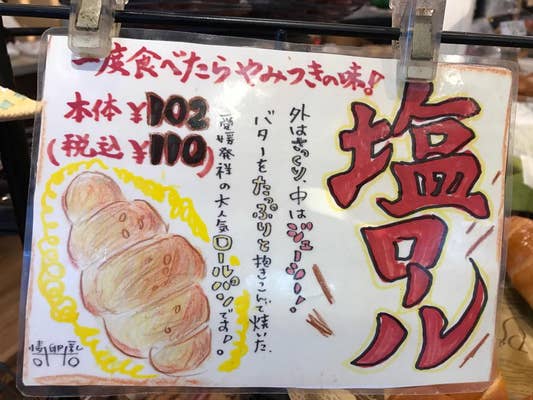 一度食べたらやみつきの味!
本体¥102
(税込¥110)
塩ロール
外はさっくり、中はジューシー!
バターをたっぷりと抱きこんで焼いた、
愛媛発祥の大人気ロールパンです!。